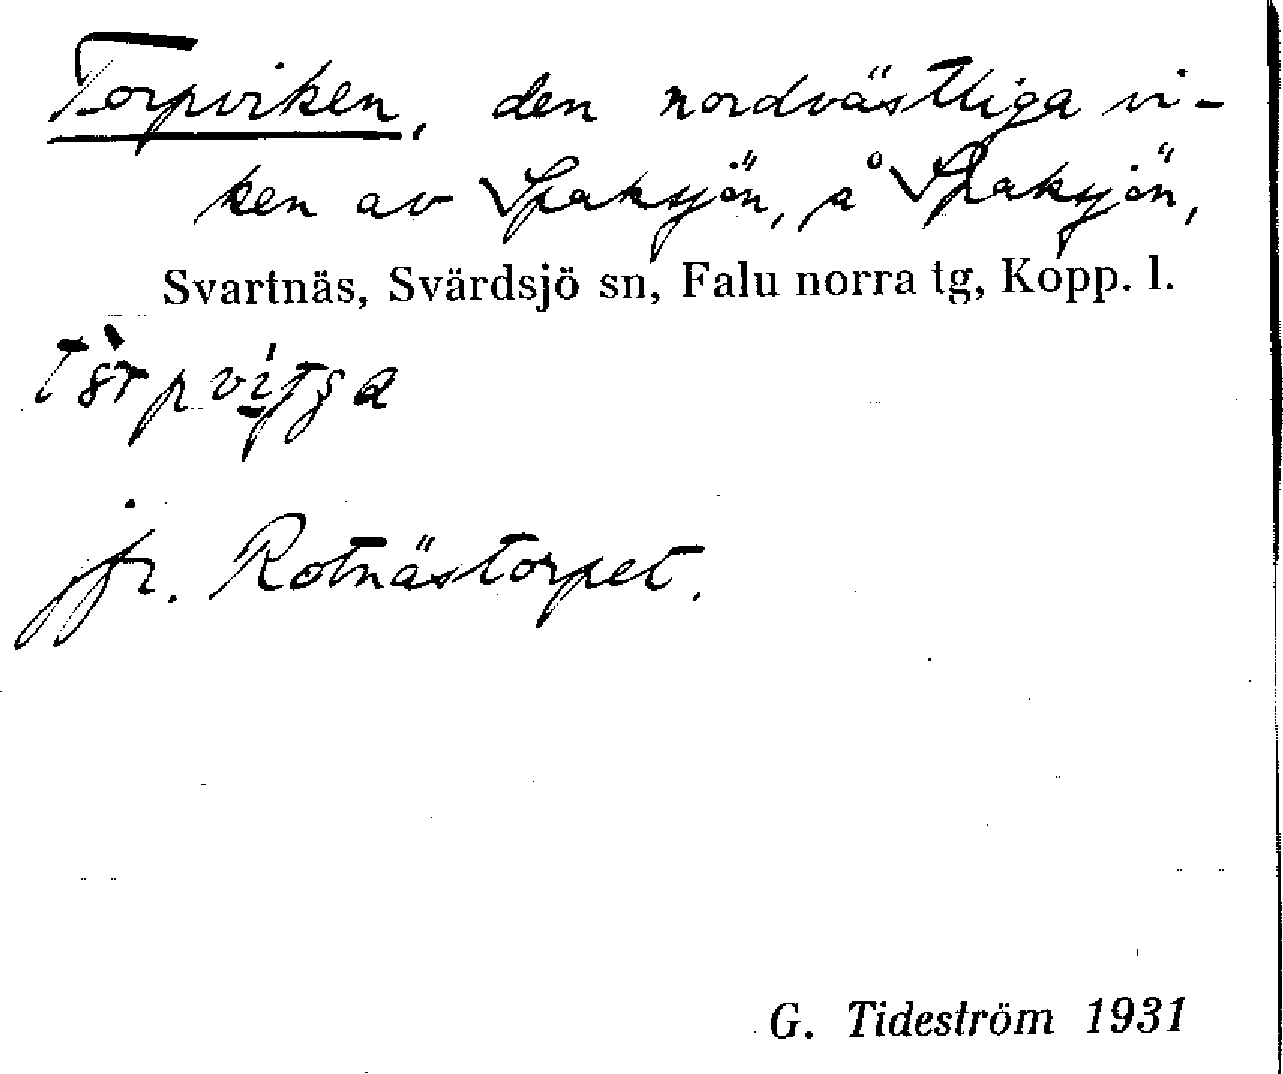 Torpviken, den nordvästliga vi-
ken av Spaksjön, å Spaksjön,
Svartnäs, Svärdsjö sn, Falu norra tg, Kopp. l.
jfr. Rotnästorpet.
G. Tideström 1931